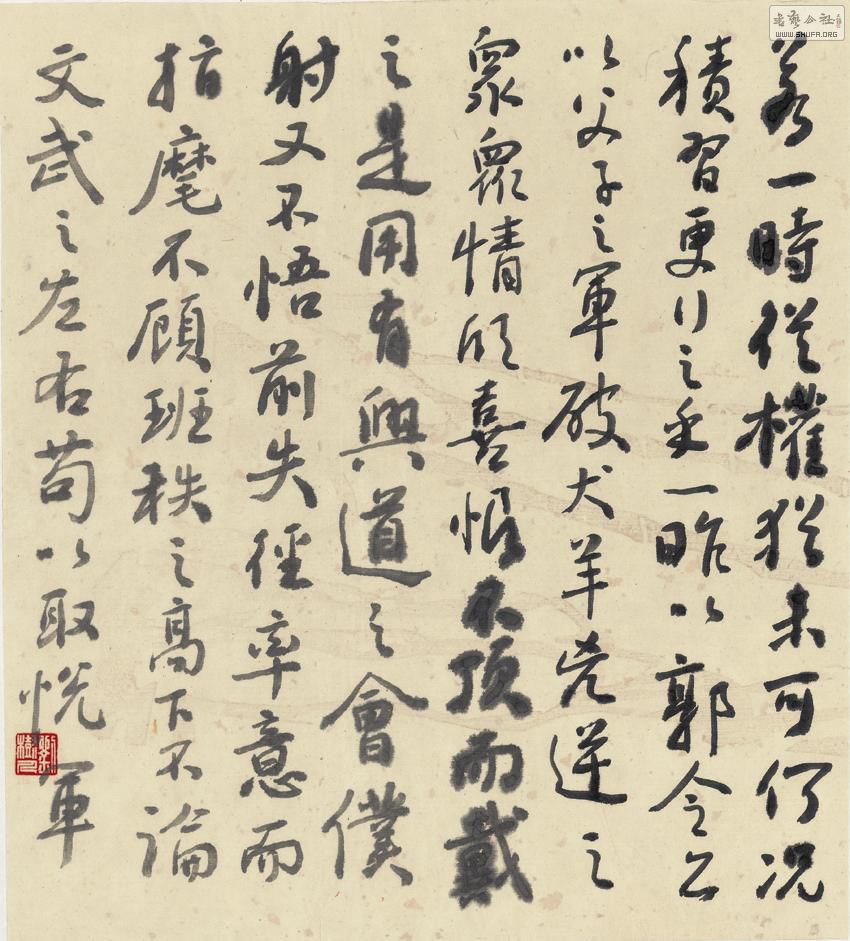 若一時從權猶未可何況
積習更行之乎一昨以郭令公
以父子之軍破犬羊兇逆之
眾眾情欣喜恨不頂而戴
之是用有興道之會僕
射又不悟前失徑率意而
指麾不顧班秩之高下不論
文武之左右苟以取悅軍
WWW.SHUFA.ORG